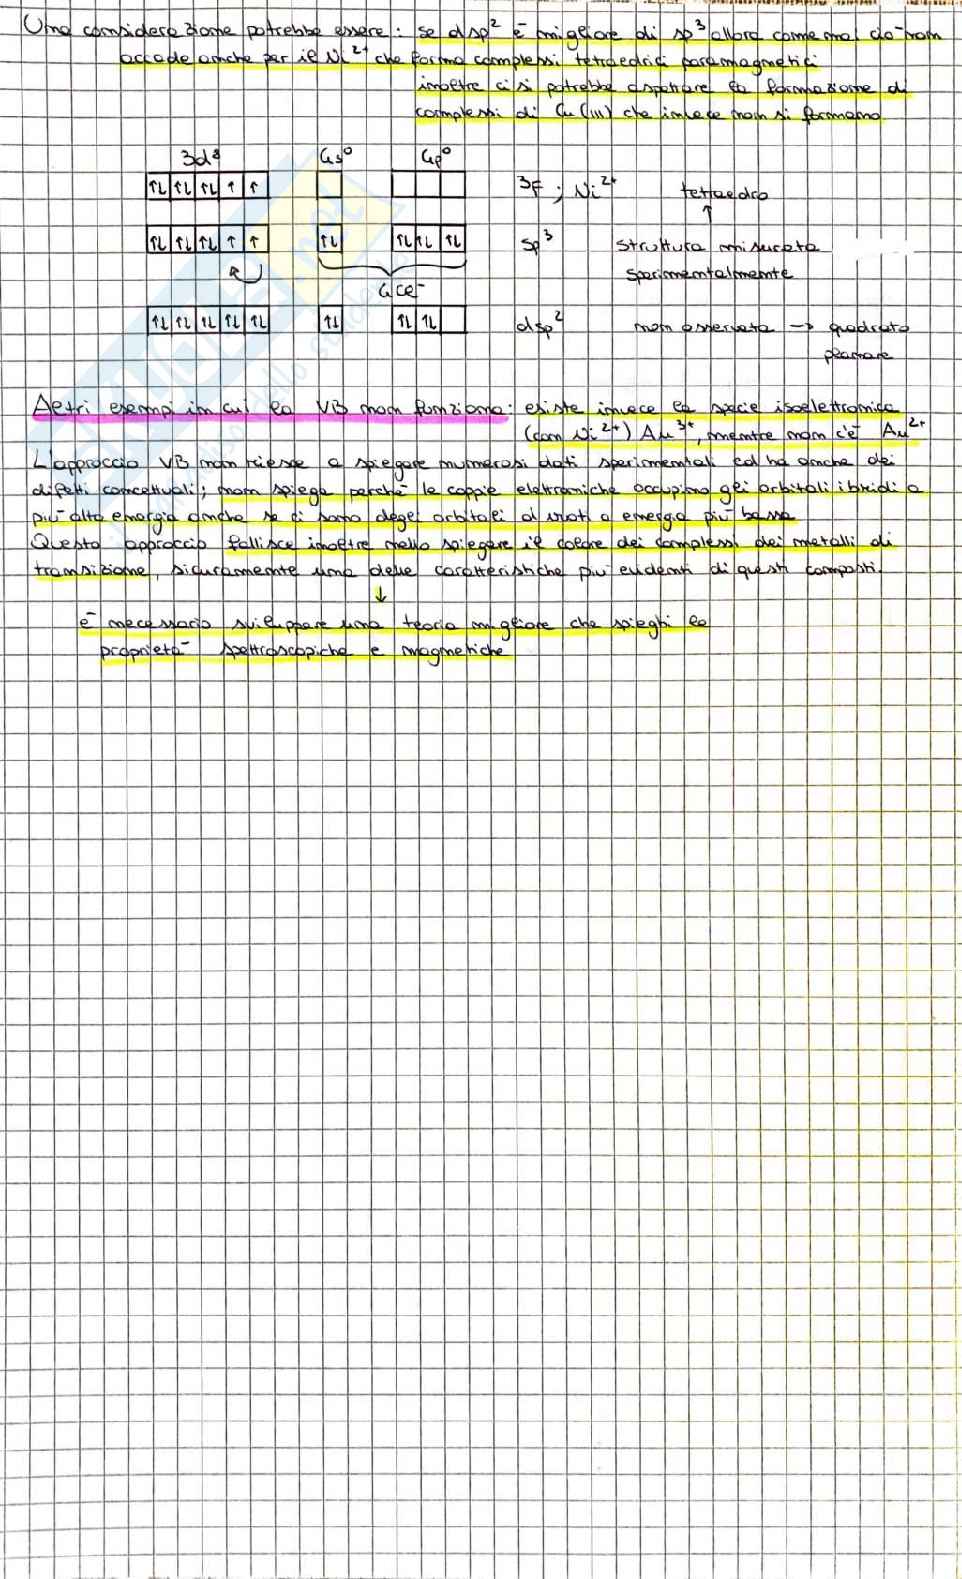 Una considerazione potrebbe essere: se dsp² è migliore di sp³ allora come mai ciò non
accade anche per il Ni²⁺ che forma complessi tetraedrici paramagnetici
inoltre ci si potrebbe aspettare la formazione di
complessi di Cu(III) che invece non si formano
3d⁸ 4s⁰ 4p⁰
↑↓ ↑↓ ↑↓ ↑ ↑ ³F ; Ni²⁺ tetraedro
↑
↑↓ ↑↓ ↑↓ ↑ ↑ ↑↓ ↑↓ ↑↓ ↑↓ sp³ struttura misurata
sperimentalmente
4Cl⁻
↑↓ ↑↓ ↑↓ ↑↓ ↑↓ ↑↓ ↑↓ ↑↓ dsp² non osservata → quadrato
planare
Altri esempi in cui la VB non funziona: esiste invece la specie isoelettronica
(con Ni²⁺) Au³⁺, mentre non c'è Au²⁺
L'approccio VB non riesce a spiegare numerosi dati sperimentali ed ha anche dei
difetti concettuali; non spiega perché le coppie elettroniche occupino gli orbitali ibridi a
più alta energia anche se ci sono degli orbitali d vuoti a energia più bassa
Questo approccio fallisce inoltre nello spiegare il colore dei complessi dei metalli di
transizione, sicuramente una delle caratteristiche più evidenti di questi composti.
↓
è necessario sviluppare una teoria migliore che spieghi le
proprietà spettroscopiche e magnetiche